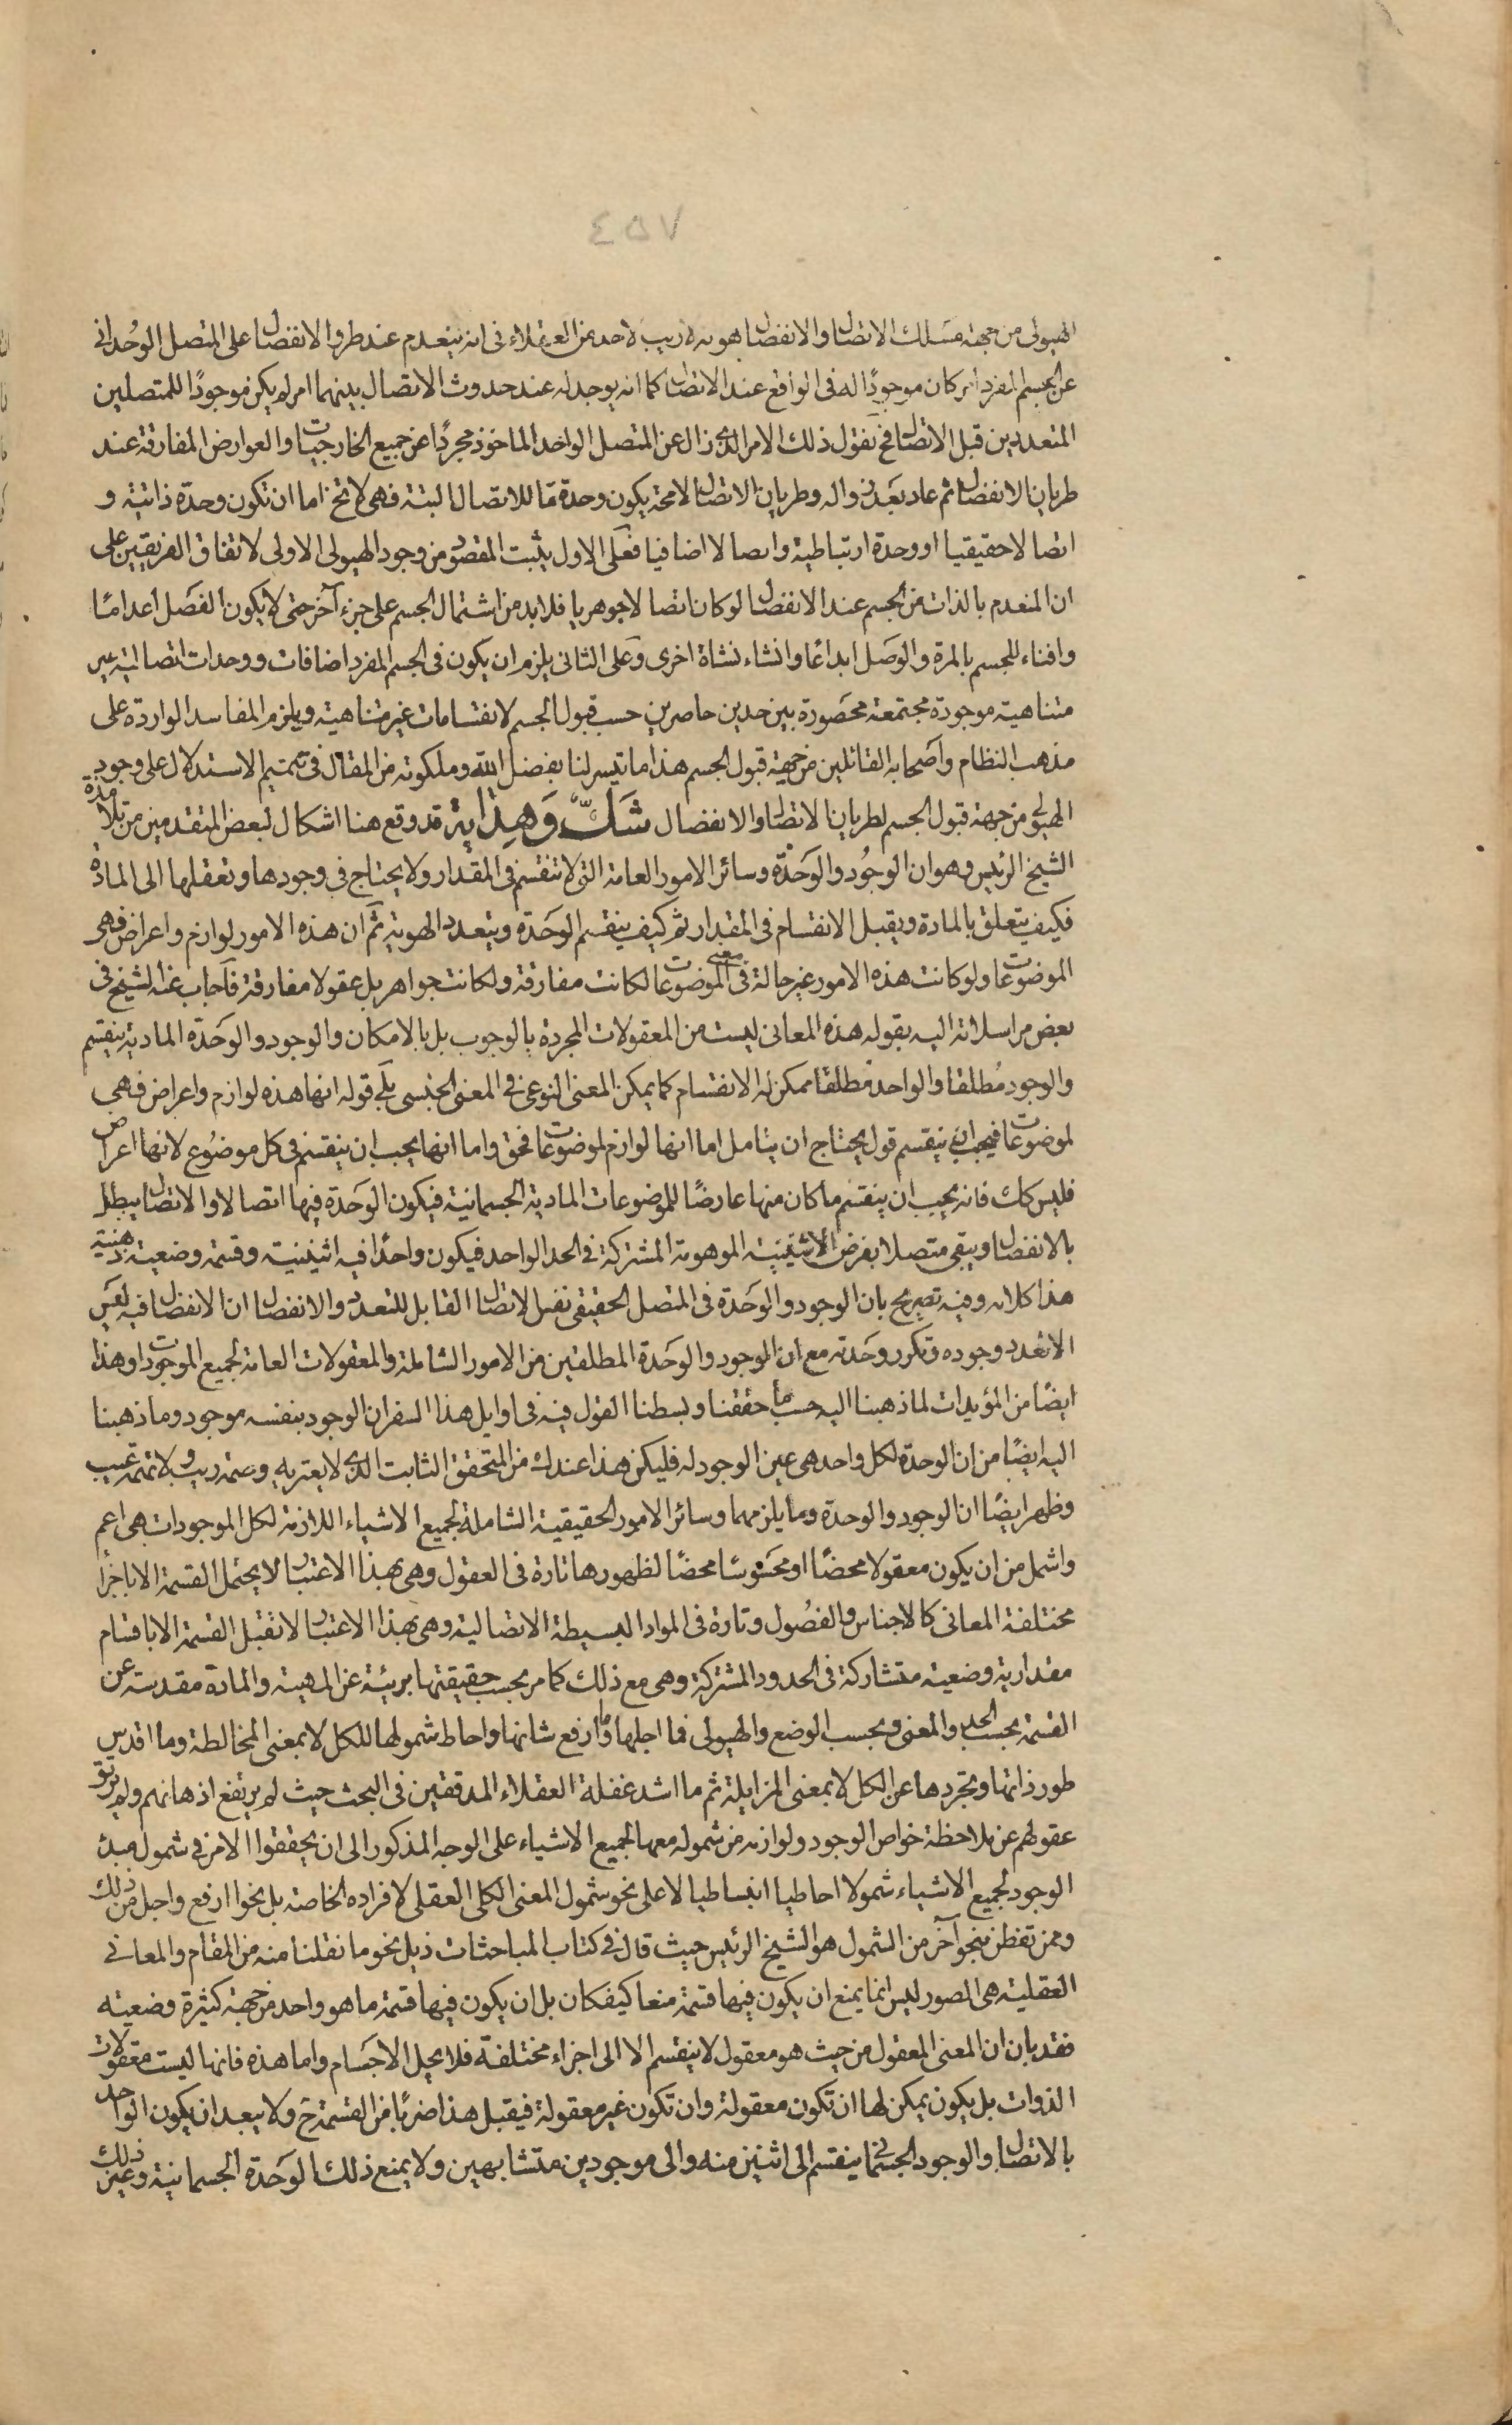 ٤٥٧
الهيولى من جهة مسلك الاتصال والانفصال هو انه لا ريب لاحد من العقلاء فى انه ينعدم عند طروا الانفصال على المتصل الوحدانى
عن الجسم المفرد امر كان موجودًا له فى الواقع عند الاتصال كما انه يوجد له عند حدوث الاتصال بينهما امر لم يكن موجودًا للمتصلين
المتعددين قبل الاتصال فح نقول ذلك الامر الذى زال عن المتصل الواحد الماخوذ مجردًا عن جميع الخارجيات والعوارض المفارقة عند
طريان الانفصال ثم عاد بعد زواله وطريان الاتصال لامحة يكون وحدة مّا للاتصال البتة فهى لا تخ اما ان تكون وحدة ذاتية و
اتصالا حقيقيا او وحدة ارتباطية واتصالا اضافيا فعلى الاول يثبت المقصود من وجود الهيولى الاولى لاتفاق الفريقين على
ان المنعدم بالذات من الجسم عند الانفصال لو كان اتصالا جوهريا فلابد من اشتمال الجسم على جزء آخر حتى لا يكون الفصل اعدامًا
وافناء للجسم بالمرة والوصل ابداعًا وانشاء نشاة اخرى وعلى الثانى يلزم ان يكون فى الجسم المفرد اضافات ووحدات اتصالية غير
متناهية موجودة مجتمعة محصورة بين حدين حاصرين حسب قبول الجسم لانقسامات غير متناهية ويلزم المفاسد الواردة على
مذهب النظام واصحابه القائلين من جهة قبول الجسم هذا ما تيسر لنا بفضل الله وملكوته من المقال فى تتميم الاستدلال على وجود
الهيولى من جهة قبول الجسم لطريان الاتصال والانفصال شَكٌّ وَهِدَايَة قد وقع هنا اشكال لبعض المتقدمين من تلامذة
الشيخ الرئيس وهو ان الوجود والوحدة وسائر الامور العامة التى لا تنقسم فى المقدار ولا يحتاج فى وجودها وتعقلها الى المادة
فكيف يتعلق بالمادة ويقبل الانقسام فى المقدار ثم كيف ينقسم الوحدة ويتعدد الهوية ثم ان هذه الامور لوازم واعراض فهى
معنى
الموضوعات ولو كانت هذه الامور غير حالة فى الموضوعات لكانت مفارقة ولكانت جواهر بل عقولا مفارقة فاجاب عنه الشيخ فى
بعض مراسلاته اليه بقوله هذه المعانى ليست من المعقولات المجردة بالوجوب بل بالامكان والوجود والوحدة المادية ينقسم
والوجود مطلقا والواحد مطلقا ممكن له الانقسام كما يمكن المعنى النوعى فى المعنى الجنسى بلى قوله انها هذه لوازم واعراض فهى
لموضوعات فيجب ان ينقسم قول يحتاج ان يتامل اما انها لوازم لموضوعات فحق واما انها يجب ان ينقسم فى كل موضوع لانها اعراض
فليس كك فانه يجب ان ينقسم ما كان منها عارضًا للموضوعات المادية الجسمانية فيكون الوحدة فيها اتصالا والاتصال يبطل
بالانفصال ويبقى متصلا بفرض الاثنينية الموهومة المشتركة فى الحد الواحد فيكون واحدًا فيه اثنينية وقسمة وضعية ذهنية
هذا كلامه وفيه تصريح بان الوجود والوحدة فى المتصل الحقيقى نفس الاتصال القابل للتعدد والانفصال ان الانفصال فيه ليس
الا تعدد وجوده وتكرر وحدته مع ان الموجود والوحدة المطلقتين من الامور الشاملة والمعقولات العامة لجميع الموجودات وهذا
ايضًا من المؤيدات لما ذهبنا اليه حسب ما حققنا وبسطنا القول فيه فى اوايل هذا السفر ان الوجود بنفسه موجود وما ذهبنا
اليه ايضًا من ان الوحدة لكل واحد هى عين الوجود له فليكن هذا عندك من المتحقق الثابت الذى لا يعتريه وصمة ريب ولا تهمة عيب
وظهر ايضًا ان الوجود والوحدة وما يلزمهما وسائر الامور الحقيقية الشاملة لجميع الاشياء اللازمة لكل الموجودات هى اعم
واشمل من ان يكون معقولا محضًا او محسوسًا محضًا لظهورها تارة فى العقول وهى بهذا الاعتبار لا يحتمل القسمة الا باجزاء
مختلفة المعانى كالاجناس والفصول وتارة فى المواد البسيطة الاتصالية وهى بهذا الاعتبار لا تقبل القسمة الا باقسام
مقدارية وضعية متشاركة فى الحدود المشتركة وهى مع ذلك كما مر بحسب حقيقتها بريئة عن المهية والمادة مقدسة عن
القسمة بحسب الحد والمعنى وبحسب الوضع والهيولى فما اجلها وما ارفع شانها واحاط شمولها للكل لا بمعنى المخالطة وما اقدس
طور ذاتها وتجردها عن الكل لا بمعنى المزايلة ثم ما اشد غفلة العقلاء المدققين فى البحث حيث لم يرتفع اذهانهم ولم يرتق
عقولهم عن ملاحظة خواص الوجود ولوازمه من شموله معها لجميع الاشياء على الوجه المذكور الى ان يحققوا الامر فى شمول مبدء
الوجود لجميع الاشياء شمولا احاطيا انبساطيا لا على نحو شمول المعنى الكلى العقلى لافراده الخاصة بل نحوا ارفع واجل من ذلك
وممن تفطن بنحو آخر من الشمول هو الشيخ الرئيس حيث قال فى كتاب المباحثات ذيل نحو ما نقلنا منه من المقام والمعانى
العقلية هى الصور ليس انما يمنع ان يكون فيها قسمة منعا كيفكان بل ان يكون فيها قسمة ما هو واحد من جهة كثيرة وضعيته
فقد بان ان المعنى المعقول من حيث هو معقول لا ينقسم الا الى اجزاء مختلفة فلا يحل الاجسام واما هذه فانها ليست معقولات
الذوات بل يكون يمكن لها ان تكون معقولة وان تكون غير معقولة فيقبل هذا ضربًا من القسمة ح ولا يبعد ان يكون الواحد
بالاتصال والوجود الجسمانى ينقسم الى اثنين منه والى موجودين متشابهين ولا يمنع ذلك الوحدة الجسمانية وغير ذلك